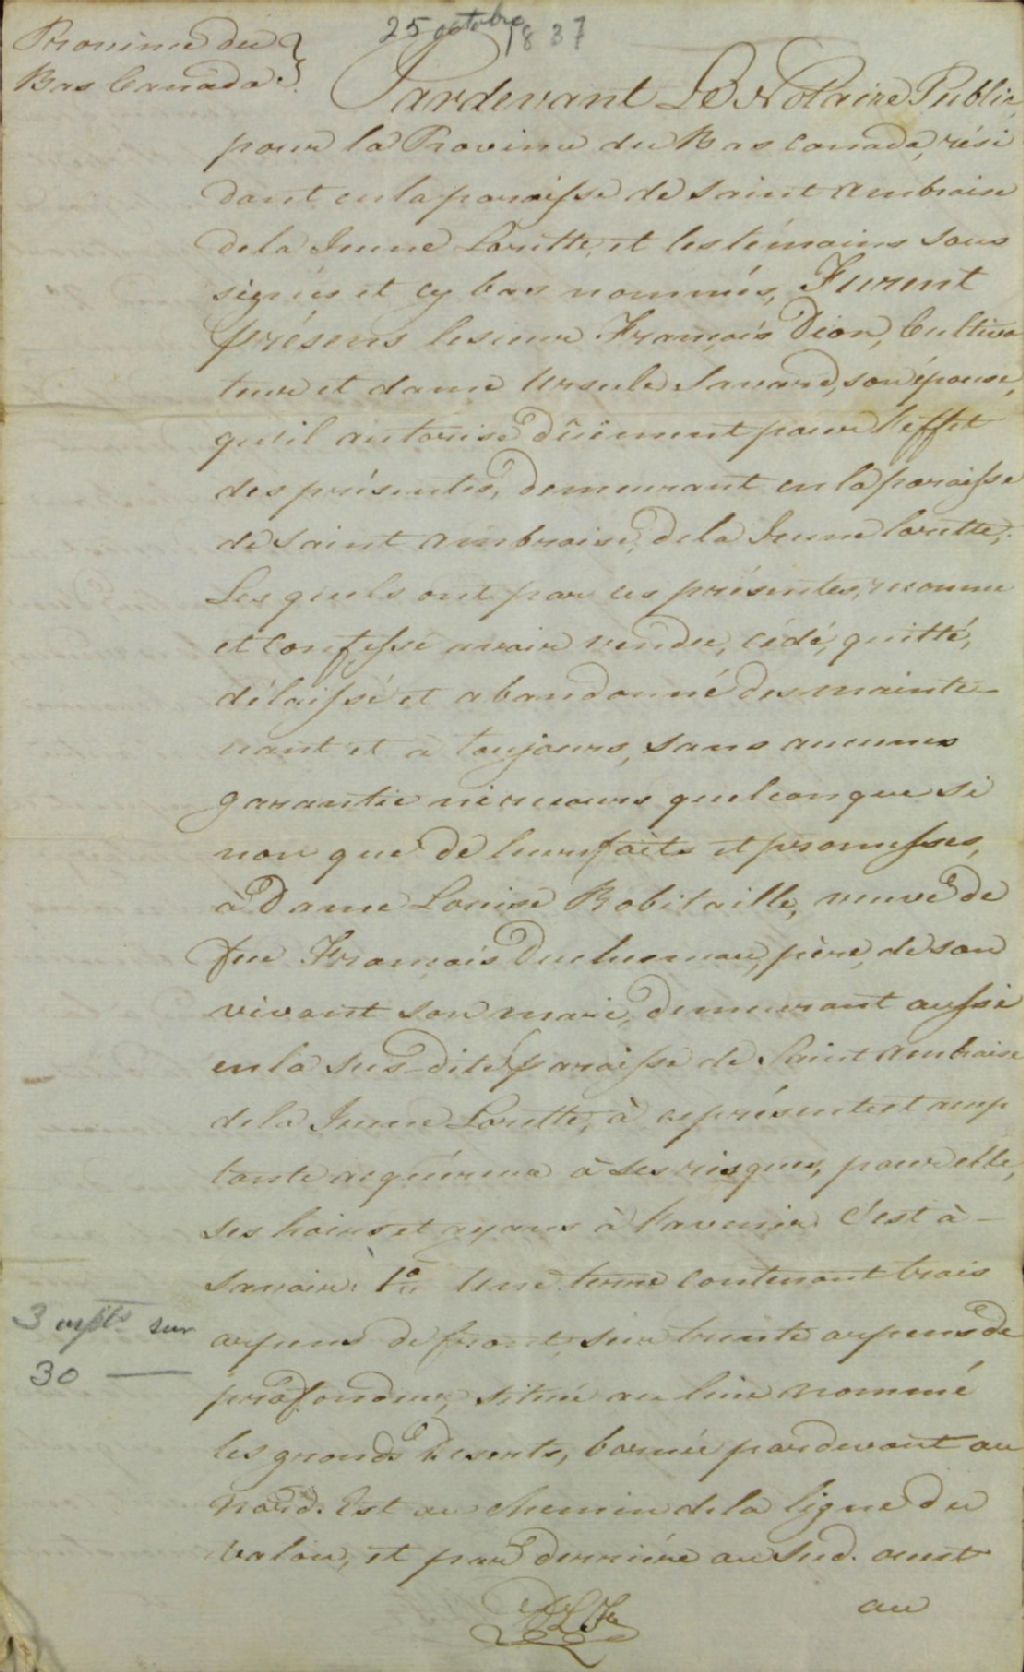 25 octobre 1837
Province du }
Bas Canada. }
Pardevant Le Notaire Public,
pour la Province du Bas Canada, rési
dant en la paroisse de Saint Ambroise
de la Jeune Lorette, et les témoins sous
signés et cy bas nommés, Furent
présens le sieur François Dion, Cultiva
teur et dame Ursule Savard, son épouse,
qu'il autorise dûement pour l'effet
des présentes, demeurant en la paroisse
de Saint Ambroise, de la Jeune Lorette;
Lesquels ont par ces présentes, reconnu
et confessé avoir vendu, cédé, quitté,
délaissé et abandonné des mainte-
nant et à toujours, sans aucunes
garantie ni recours quelconque si
non que de leurs faits et promesses,
à Dame Louise Robitaille, veuve de
feu François Duchesneau, père, de son
vivant son mari, demeurant aussi
en la sus-dite paroisse de Saint Ambroise
de la Jeune Lorette, à ce présente et acep
tante acquéreur à ses risques, pour elle,
ses hoirs et ayans à l'avenir C'est à-
savoir: 1º Une terre contenant trois
arpens de front, sur trente arpens de
profondeur, située au lieu nommé
les grands Deserts, bornée pardevant au
Nord-Est au chemin de la ligne du
valon, et par derrière au Sud-ouest
au
3 arpts sur
30 —